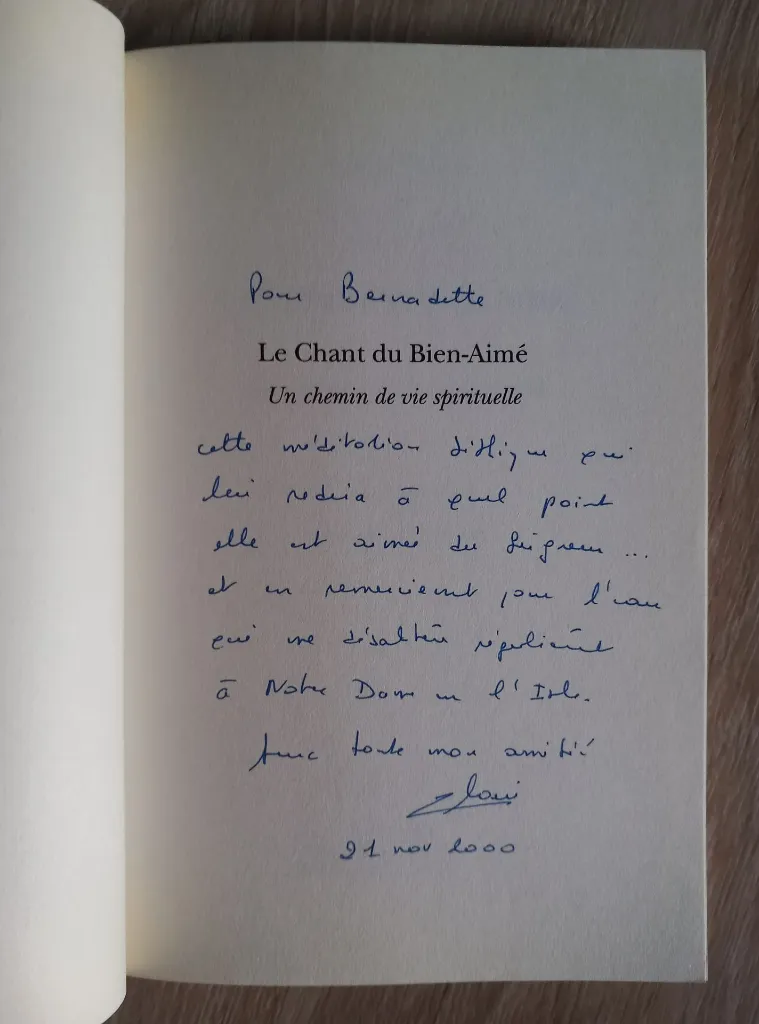 Pour Bernadette
Le Chant du Bien-Aimé
Un chemin de vie spirituelle
cette méditation qui
lui redira à quel point
elle est aimée du Seigneur ...
et en remerciement pour l'eau
qui me désaltère régulièrement
à Notre Dame en l'Isle.
Avec toute mon amitié
21 nov 2000